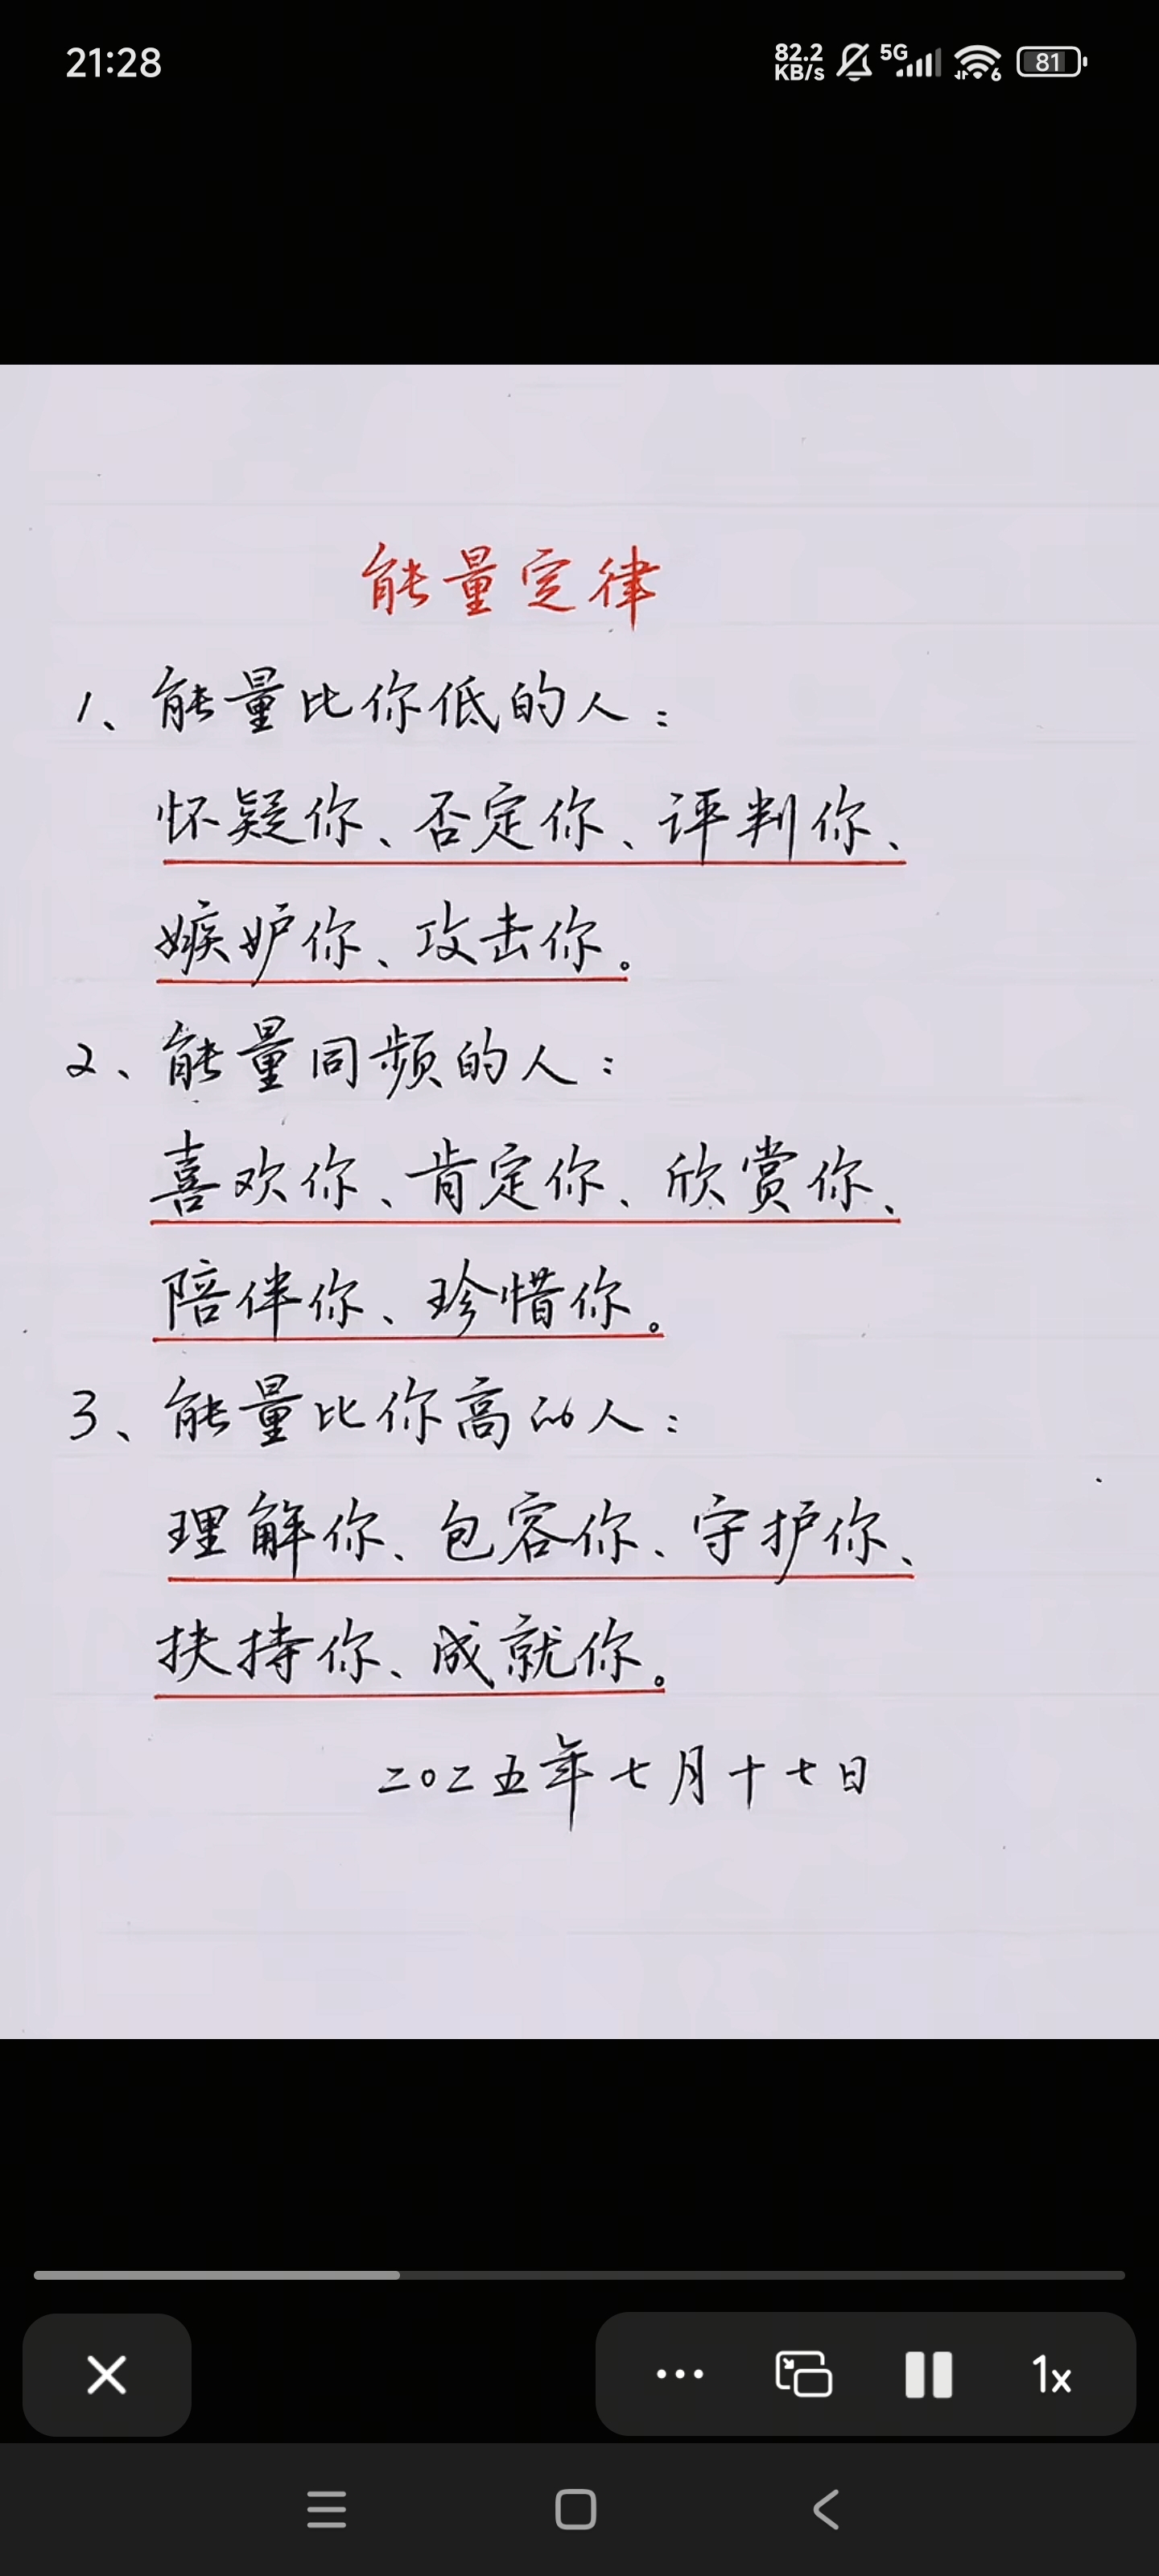 21:28
82.2 KB/s 5G 6 81
能量定律
1、能量比你低的人：
怀疑你、否定你、评判你、
嫉妒你、攻击你。
2、能量同频的人：
喜欢你、肯定你、欣赏你、
陪伴你、珍惜你。
3、能量比你高的人：
理解你、包容你、守护你、
扶持你、成就你。
二〇二五年七月十七日
1x